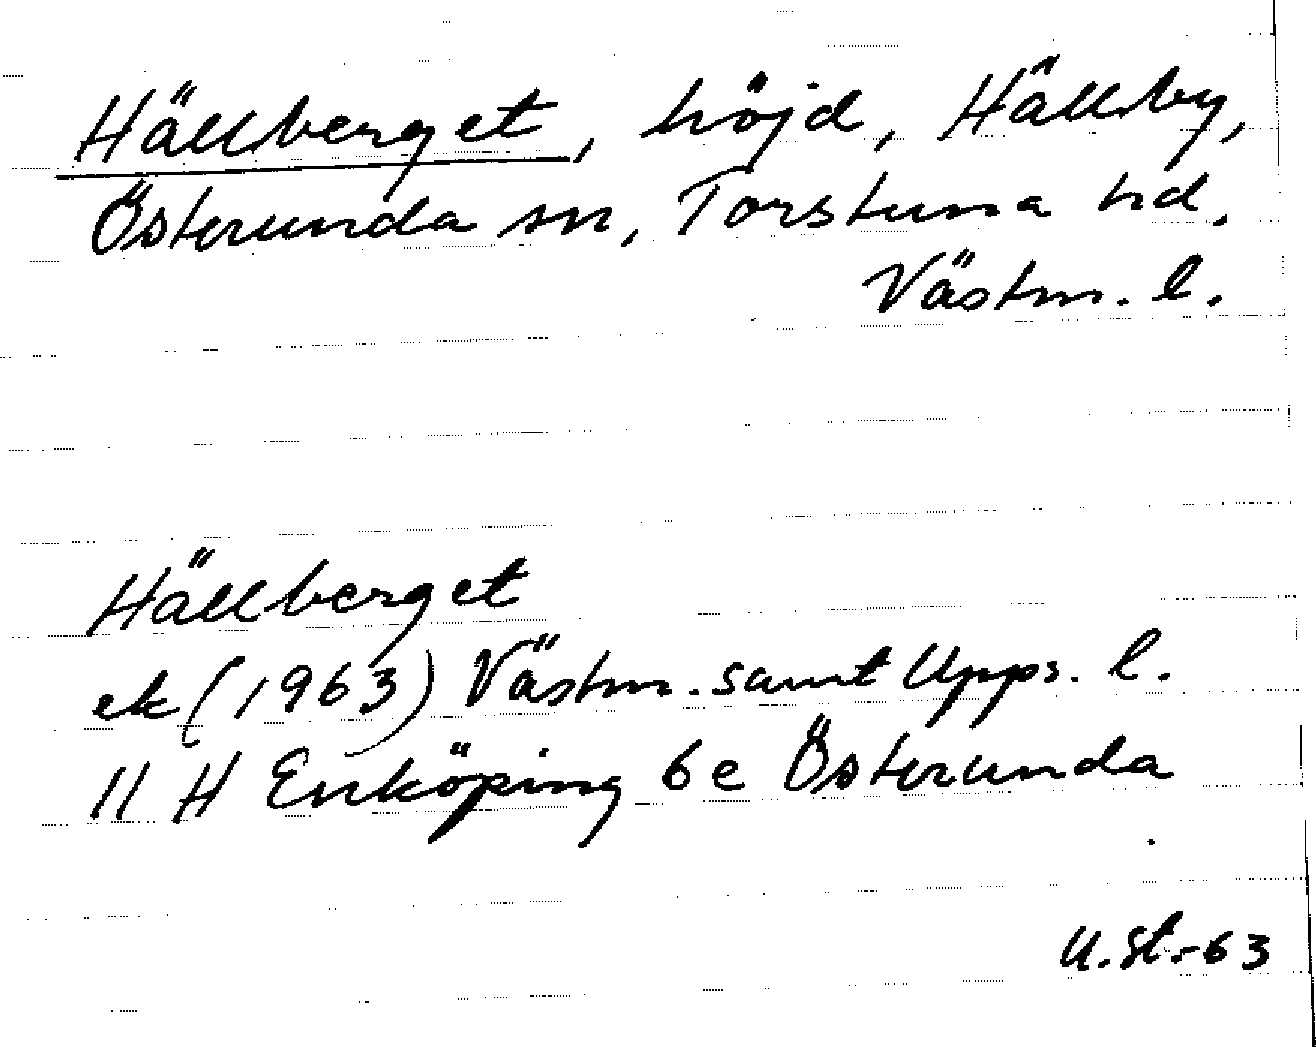 Hällberget, höjd, Hällby,
Österunda sn, Torstuna hd,
Västm. l.
Hällberget
ek (1963) Västm. samt Upps. l.
11 H Enköping 6e Österunda
U.St.-63